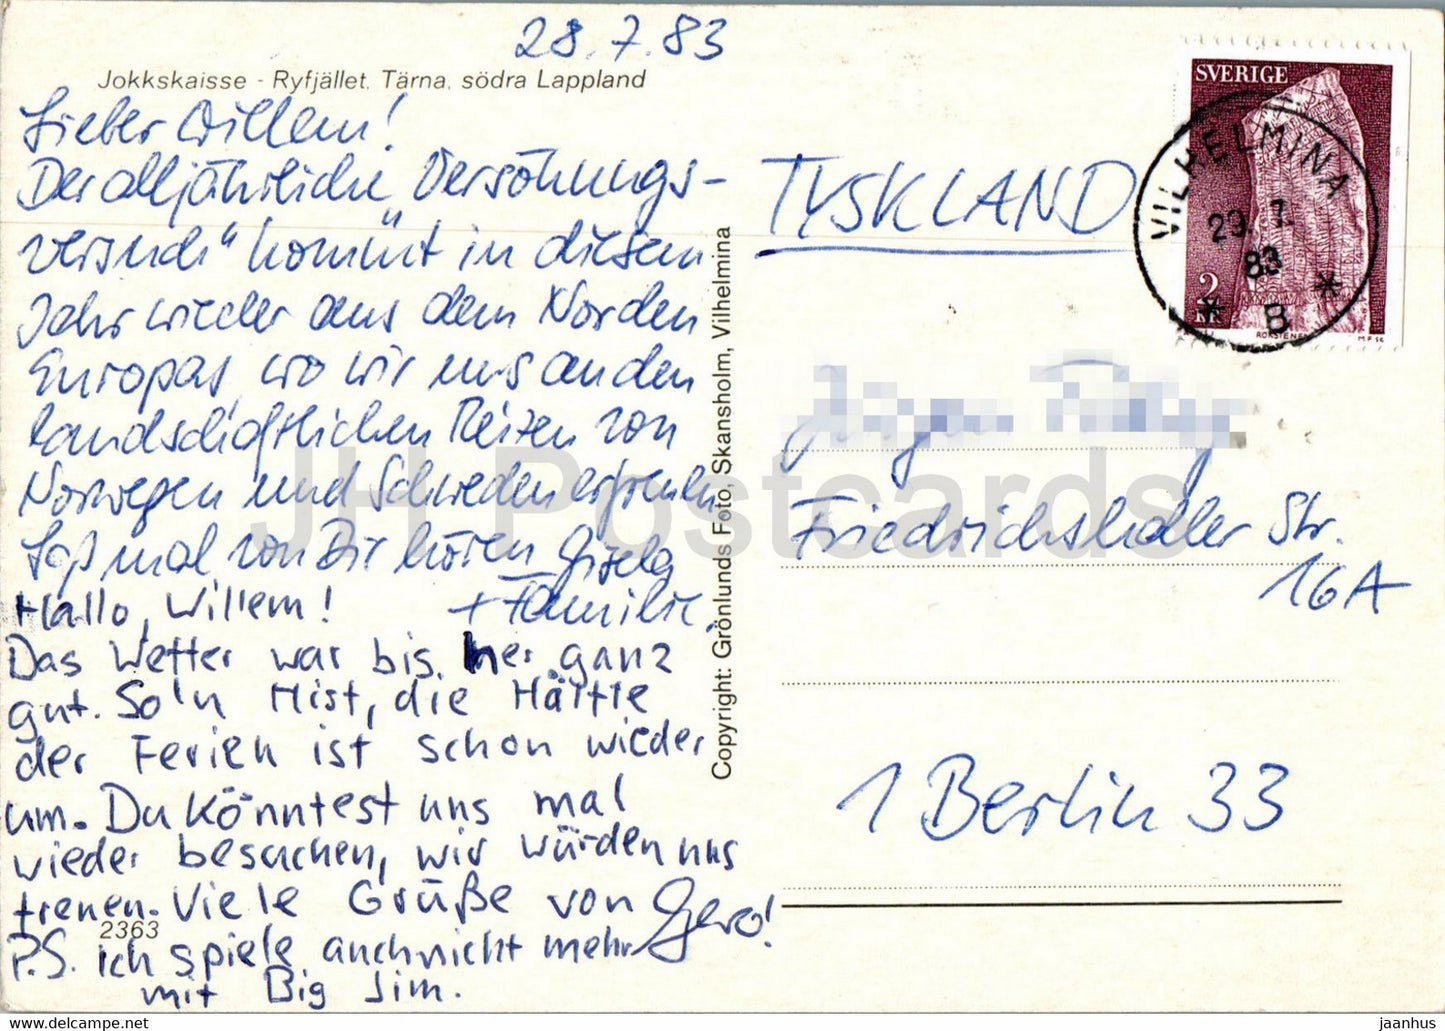 28.7.83
Jokkskaisse - Ryfjället. Tärna, södra Lappland
Lieber Willem!
Der alljährliche „Versöhnungs-
versuch“ kommt in diesem
Jahr wieder aus dem Norden
Europas, wo wir uns an den
landschaftlichen Reizen von
Norwegen und Schweden erfreuen.
Laß mal von Dir hören Gisela
+ Familie.
Hallo, Willem!
Das Wetter war bis her ganz
gut. So'n Mist, die Hälfte
der Ferien ist schon wieder
um. Du könntest uns mal
wieder besuchen, wir würden uns
freuen. Viele Grüße von Gero!
2363
P.S. ich spiele auch nicht mehr
mit Big Jim.
Copyright: Grönlunds Foto, Skansholm, Vilhelmina
SVERIGE
2
KR
ROKSTENEN
M F SC
VILHELMINA
29. 7.
83
* B *
TYSKLAND
Jürgen
Friedrichshaller Str.
16A
1 Berlin 33
JH Postcards
www.delcampe.net
jaanhus